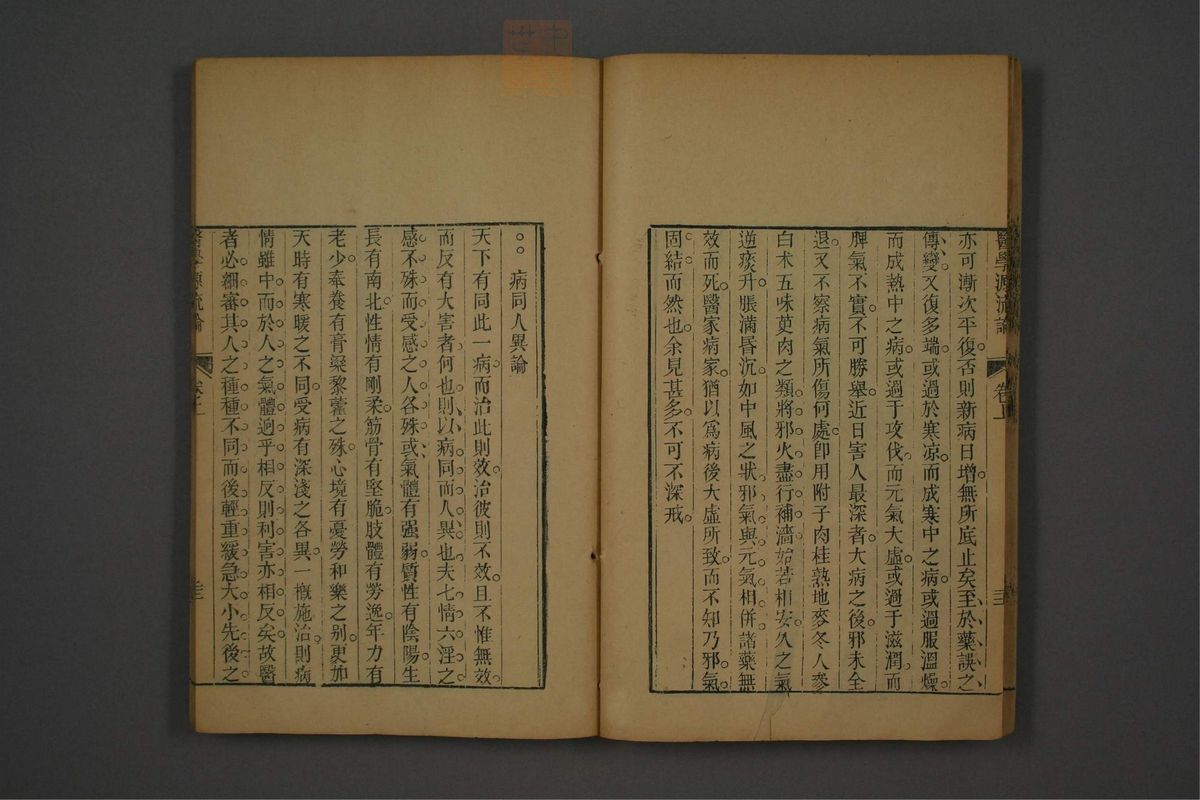 醫學源流論　卷上
亦可漸次平復。否則新病日增。無所底止矣。至於藥誤之
傳變。又復多端。或過於寒凉。而成寒中之病。或過服溫燥。
而成熱中之病。或過于攻伐。而元氣大虛。或過于滋潤。而
脾氣不實。不可勝舉。近日害人最深者。大病之後。邪未全
退。又不察病氣所傷何處。卽用附子肉桂熟地麥冬人參
白朮五味萸肉之類。將邪火盡行補濇。始若相安。久之氣
逆痰升。脹滿昏沉。如中風之狀。邪氣與元氣相併。諸藥無
效而死。醫家病家。猶以爲病後大虛所致。而不知乃邪氣
固結而然也。余見甚多。不可不深戒。
病同人異論
天下有同此一病。而治此則效。治彼則不效。且不惟無效。
而反有大害者何也。則以病同而人異也。夫七情六淫之
感不殊。而受感之人各殊。或氣體有强弱。質性有陰陽。生
長有南北。性情有剛柔。筋骨有堅脆。肢體有勞逸。年力有
老少。奉養有膏粱藜藿之殊。心境有憂勞和樂之别。更加
天時有寒暖之不同。受病有深淺之各異。一概施治。則病
情雖中。而於人之氣體。迥乎相反。則利害亦相反矣。故醫
者必細審其人之種種不同。而後輕重緩急大小先後之
醫學源流論　卷上